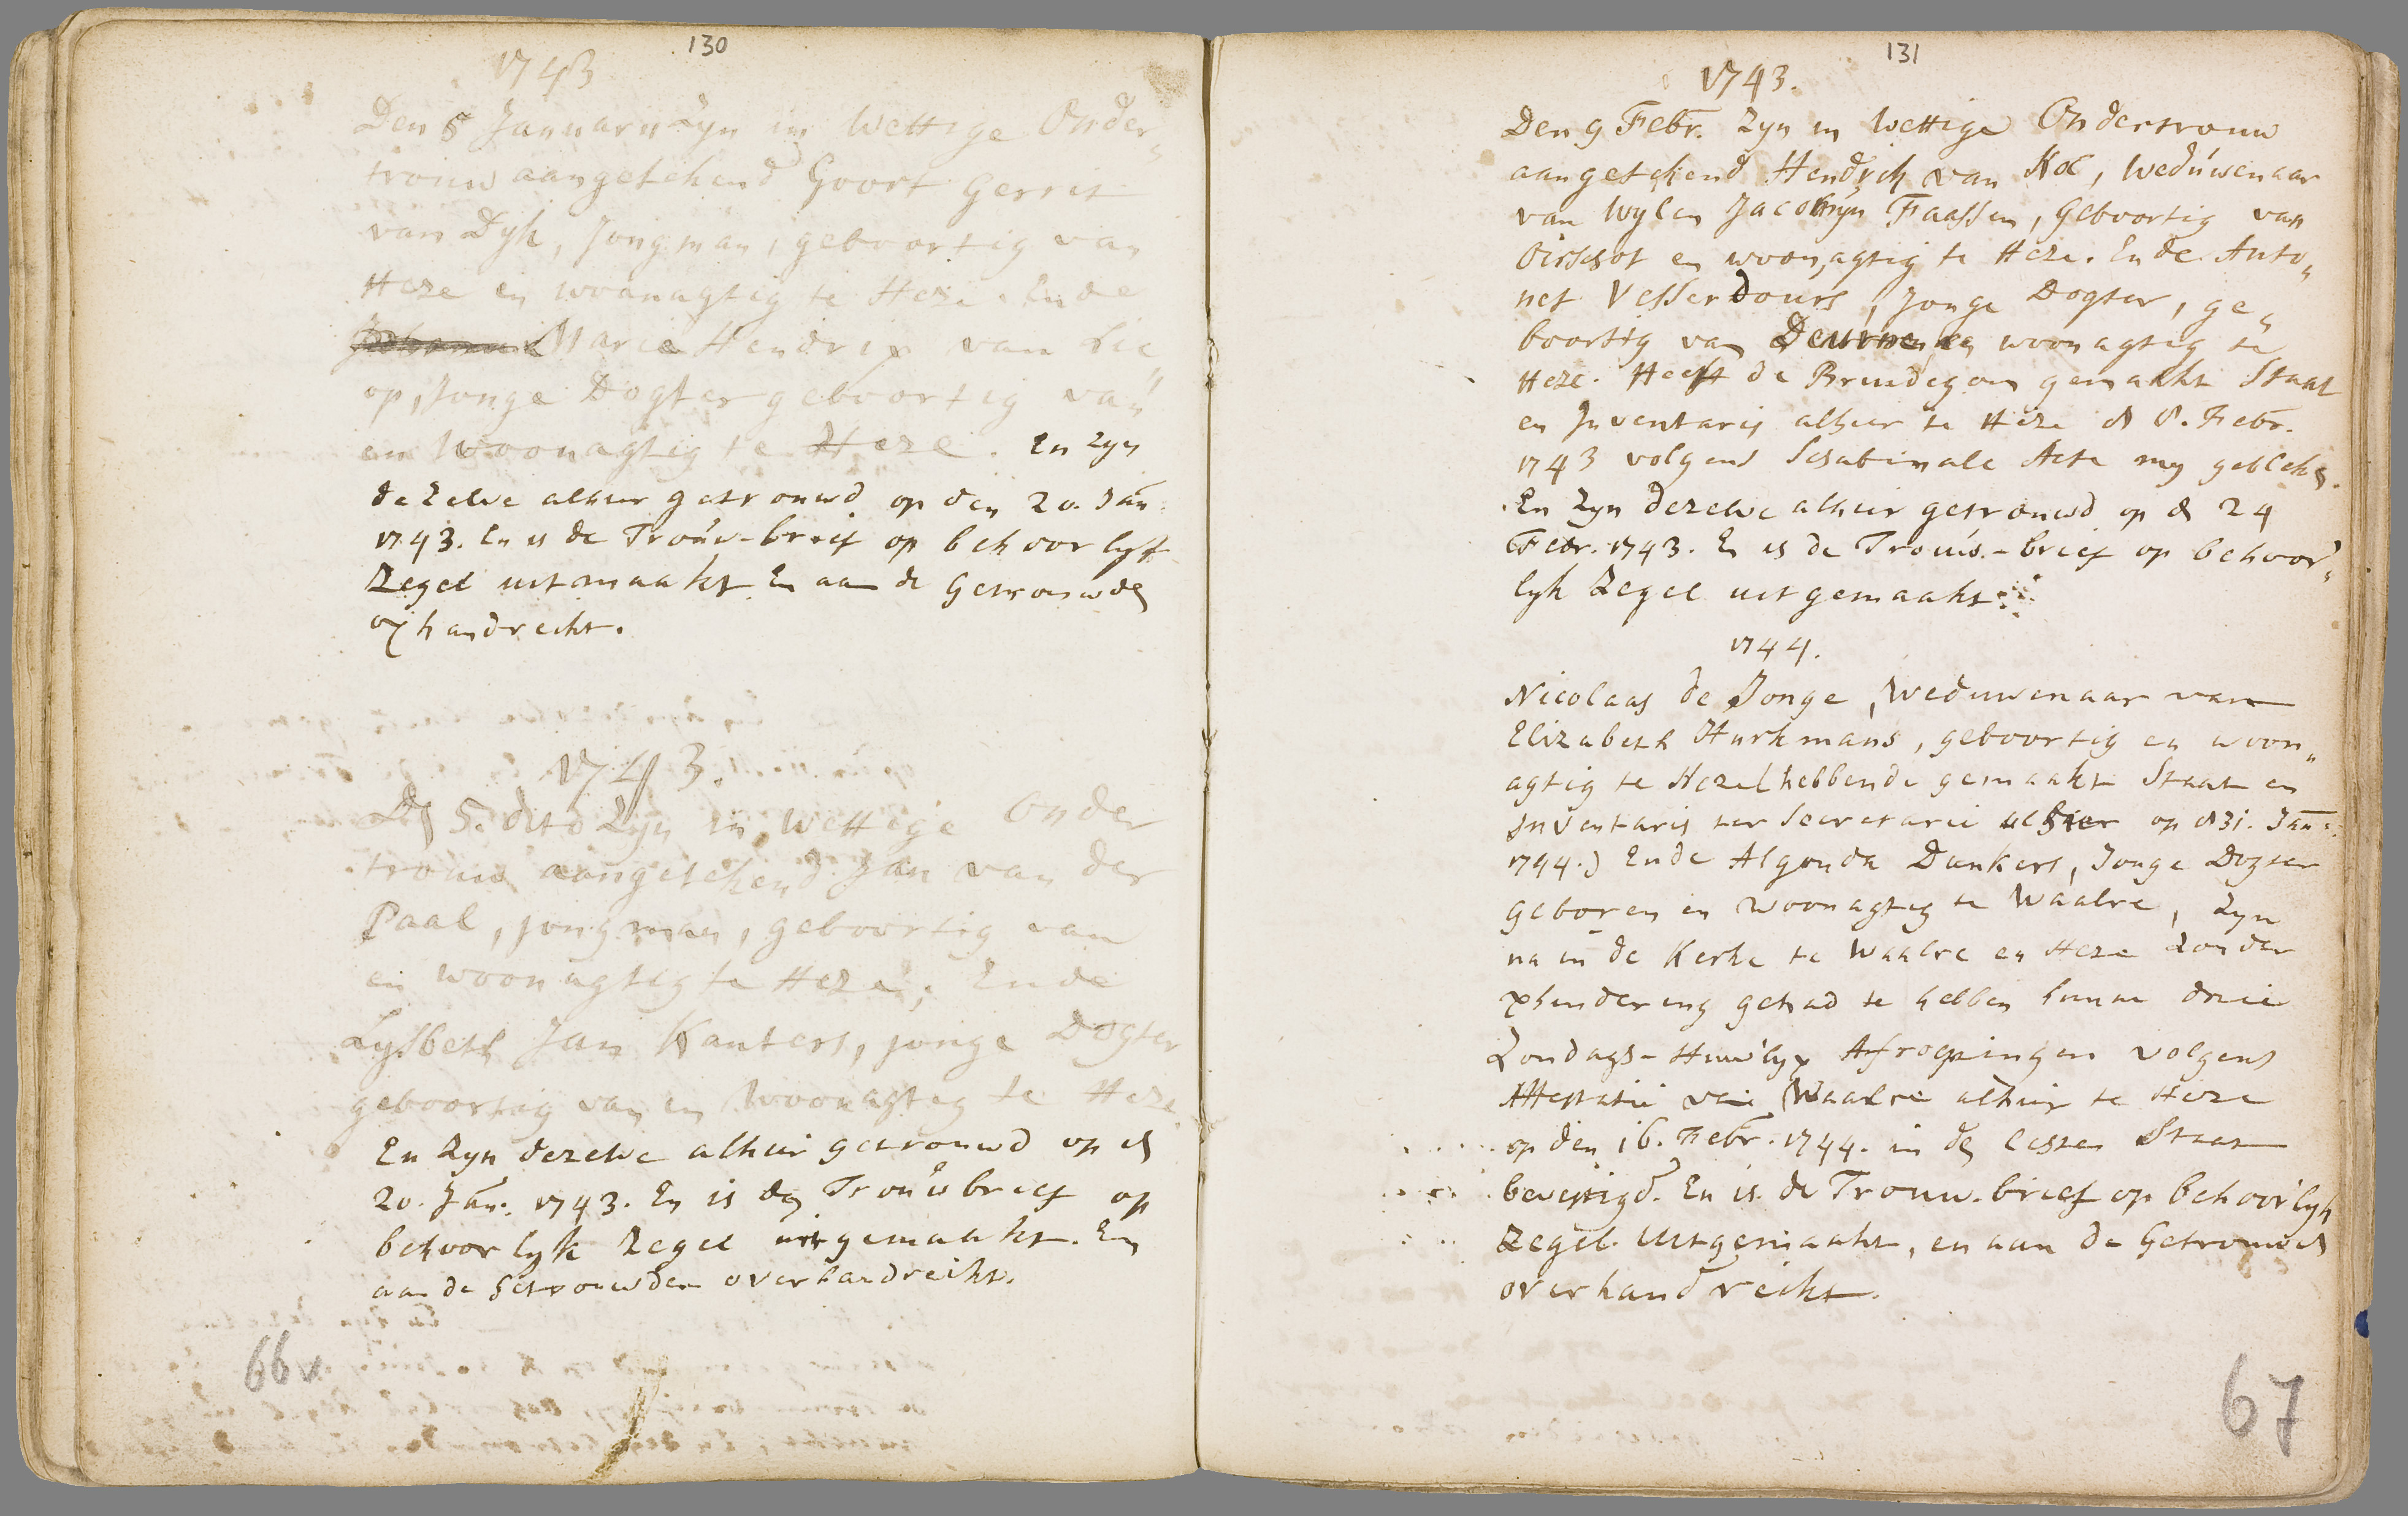 130
1743
Den 5 January Zyn in Wettige Onder„
trouw aangetekend Goort Gerrit
van Dyk, Jongman, geboortig van
Heze en woonagtig te Heze. Ende
Marie Hendrix van Lie„
op, Jonge Dogter geboortig van
en Woonagtig te Heze. En zyn
dezelve alhier getrouwd op den 20. Jan:
1743. En is de Trouw-brief op behoorlyk
Zegel uitmaakt En aan de Getrouwden
handreikt.
1743.
Dn 5. dito Zyn in Wettige Onder
trouw aangetekend Jan van der
Paal, jongman, geboortig van
en woonagtig te Heze; Ende
Lysbeth Jan Kanters, jonge Dogter
geboortig van en Woonagtig te Heze.
En Zyn dezelve alhier getrouwd op d
20. Jan. 1743. En is de Trouwbrief op
behoorlyk Zegel uitgemaakt. En
aan de Getrouwden overhandreikt.
66v
131
1743.
Den 9 Febr. Zyn in Wettige Ondertrouw
aangetekend Hendrik van Kol, Weduwenaar
van Wylen Jacomyn Faassen, Geboortig van
Oirschot en woonagtig te Heze. Ende Anto„
net Vesserdours, Jonge Dogter, ge„
boortig van Deurne en woonagtig te
Heze. Heeft de Bruidegom gemaakt Staat
en Inventaris alhier te Heze d 8. Febr.
1743 volgens Schabinale Acte my gebleken.
En Zyn dezelve alhier getrouwd op d 24
Febr. 1743. En is de Trouw-brief op behoor„
lyk Zegel uitgemaakt.
1744.
Nicolaas de Jonge, Weduwenaar van
Elizabeth Hurkmans, geboortig en woon„
agtig te Heze (hebbende gemaakt Staat en
Inventaris ter Secretarie alhier op d 31. Jan:
1744.) Ende Algonda Dankers, Jonge Dogter
geboren en woonagtig te Waalre, Zyn
na in de Kerke te Waalre en Heze Zonder
verhindering gehad te hebben hunne drie
Zondags-Huwlyx Afroepingen volgens
Attestatie van Waalre alhier te Heze
op den 16. Febr. 1744. in den Egten Staat
bevestigd. En is de Trouw-brief op behoorlyk
Zegel Uitgemaakt, en aan de Getrouwd
overhandreikt.
67